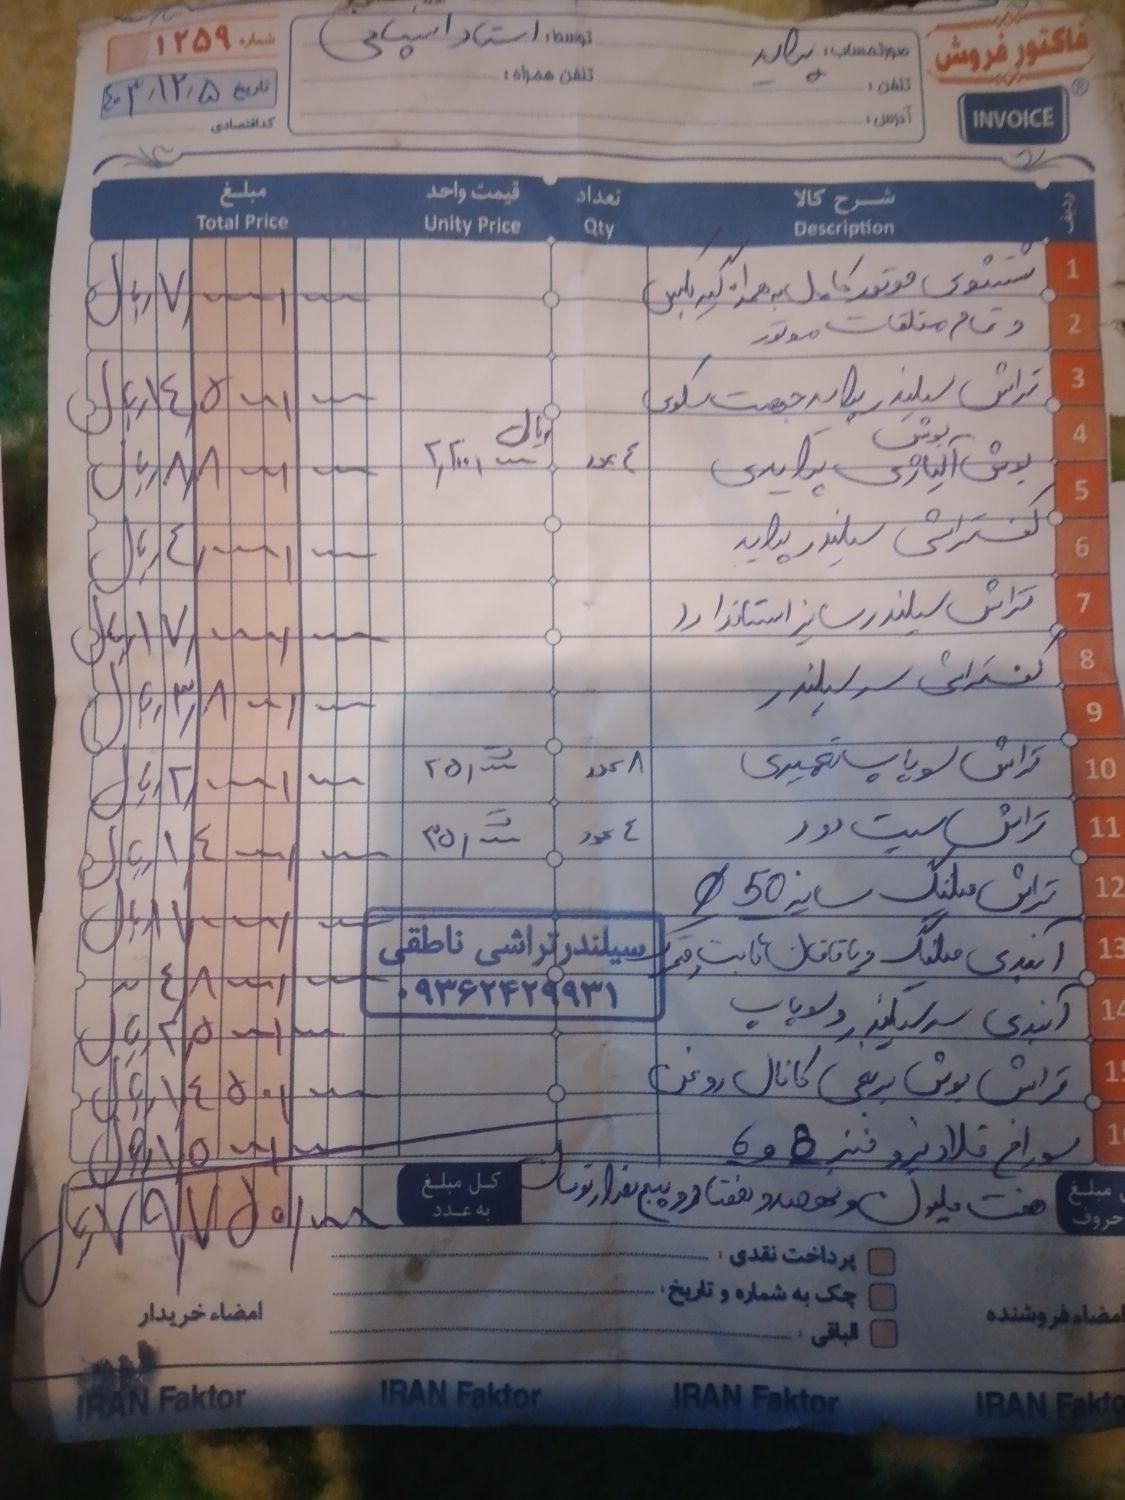 شماره ۱۲۵۹
تاریخ ۴۰۳/۱۲/۵
کد اقتصادی
صورتحساب: پراید
توسط: استاد
تلفن:
تلفن همراه:
آدرس:
فاکتور فروش
INVOICE
ردیف شرح کالا تعداد قیمت واحد مبلغ
Description Qty Unity Price Total Price
1 شستشوی موتور کامل به همراه گیربکس ۷/۰۰۰/۰۰۰ ریال
2 و تمام متعلقات موتور
3 تراش سیلندر پراید جهت ۱۴/۵۰۰/۰۰۰ ریال
4 بوش
5 بوش آلیاژی پرایدی ۴ عدد ۲,۲۰۰/۰۰۰ ریال ۸/۸۰۰/۰۰۰ ریال
6 کف تراشی سیلندر پراید ۴/۰۰۰/۰۰۰ ریال
7 تراش سیلندر سایز استاندارد ۱۷/۰۰۰/۰۰۰ ریال
8 کف تراشی سرسیلندر
9 ۳/۸۰۰/۰۰۰ ریال
10 تراش سوپاپ تعمیری ۸ عدد ۲۵۰/۰۰۰ ۲/۰۰۰/۰۰۰ ریال
11 تراش سیت دود ۴ عدد ۳۵۰/۰۰۰ ۱/۴۰۰/۰۰۰ ریال
12 تراش میلنگ سایز 50 Ø
13 آببندی میلنگ و یاتاقان ثابت و متحرک ۴/۸۰۰/۰۰۰
14 آببندی سرسیلندر و سوپاپ ۲/۵۰۰/۰۰۰ ریال
15 تراش بوش برنجی کانال روغن ۱/۴۵۰/۰۰۰ ریال
سوراخ قلاویز و فنر 8 و 6 ۱/۵۰۰/۰۰۰ ریال
سیلندرتراشی ناطقی
۰۹۳۶۲۴۲۹۹۳۱
مبلغ حروف هفت میلیون و نهصد و هفتاد و پنج هزار تومان کل مبلغ به عدد ۷۹/۷۵۰/۰۰۰ ریال
پرداخت نقدی:
چک به شماره و تاریخ:
الباقی:
امضاء فروشنده امضاء خریدار
IRAN Faktor IRAN Faktor IRAN Faktor IRAN Fakto